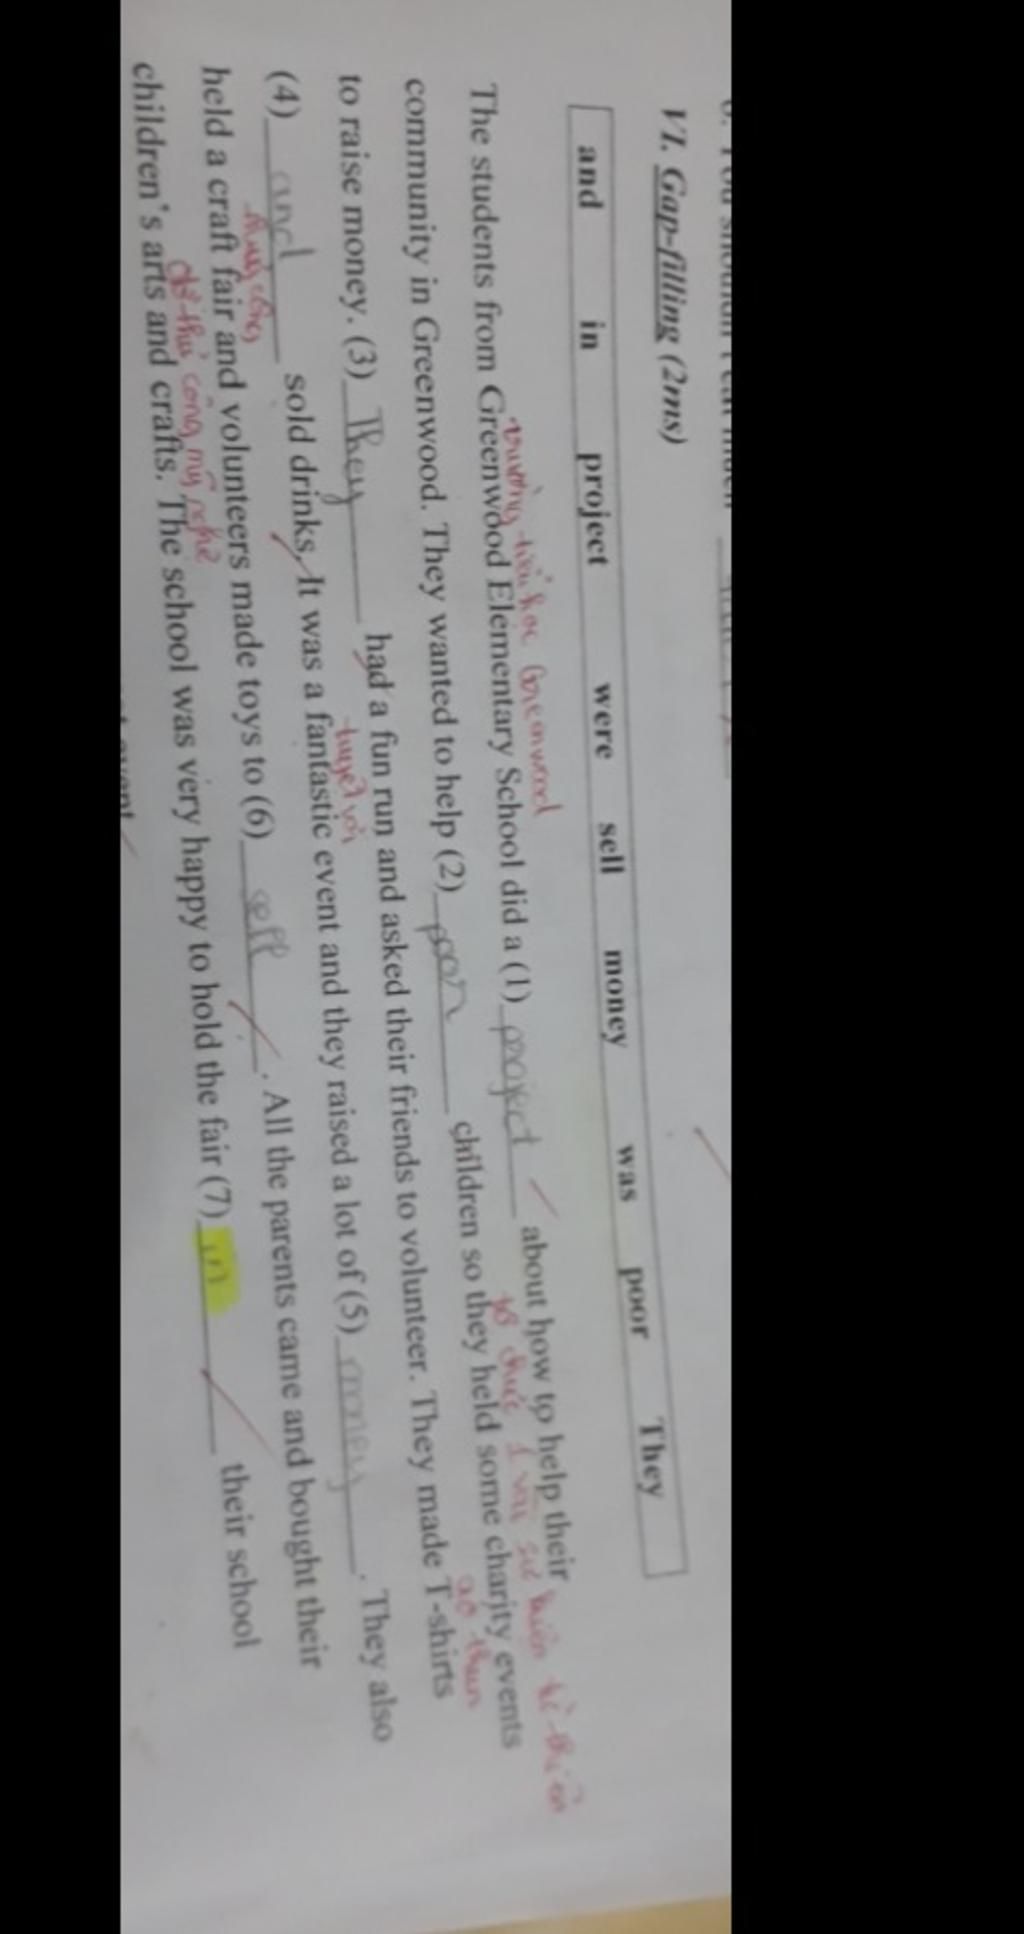 VI. Gap-filling (2ms)
and in project were sell money was poor They
trường tiểu học Greenwood
The students from Greenwood Elementary School did a (1) project about how to help their
tổ chức 1 vài sự kiện từ thiện
community in Greenwood. They wanted to help (2) poor children so they held some charity events
to raise money. (3) They had a fun run and asked their friends to volunteer. They made T-shirts
áo thun
tuyệt vời
(4) and sold drinks. It was a fantastic event and they raised a lot of (5) money. They also
held a craft fair and volunteers made toys to (6) sell. All the parents came and bought their
đồ thủ công mỹ nghệ
children's arts and crafts. The school was very happy to hold the fair (7) in their school